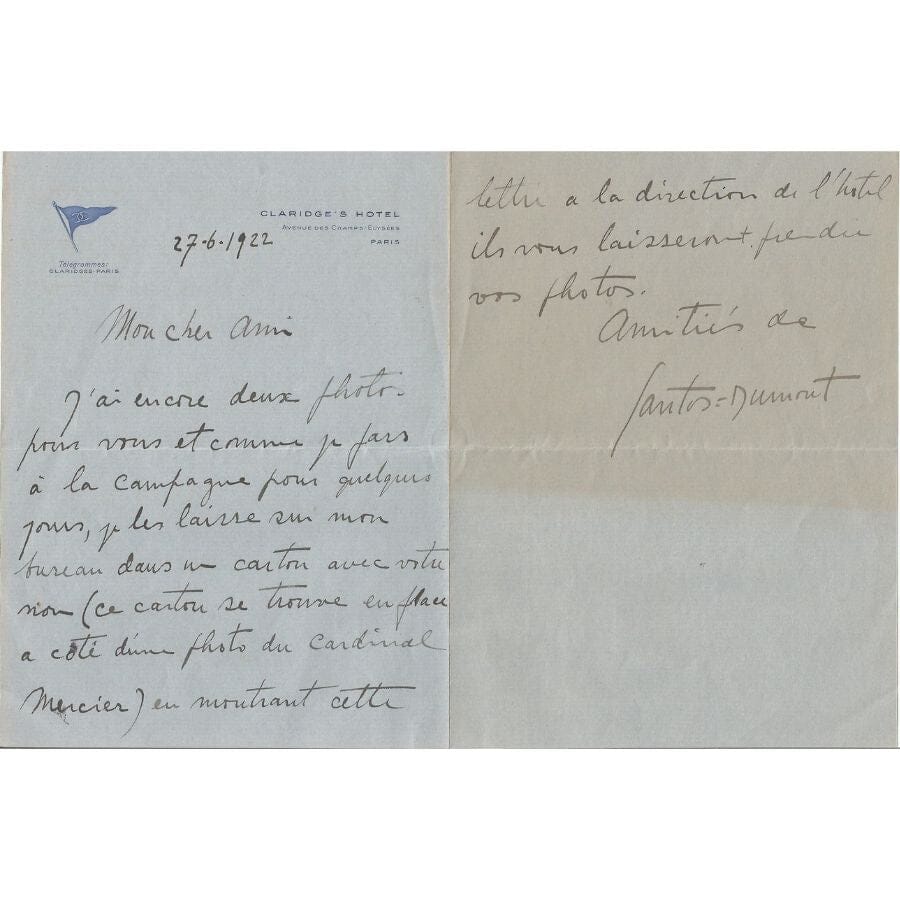 CLARIDGE'S HOTEL
AVENUE DES CHAMPS-ELYSÉES
PARIS
Télégrammes:
CLARIDGES-PARIS
27-6-1922
Mon cher Ami
J'ai encore deux photos
pour vous et comme je pars
à la campagne pour quelques
jours, je les laisse sur mon
bureau dans un carton avec votre
nom (ce carton se trouve en place
a coté d'une photo du Cardinal
Mercier) en montrant cette
lettre a la direction de l'hotel
ils vous laisseront prendre
vos photos.
Amitiés de
Santos=Dumont